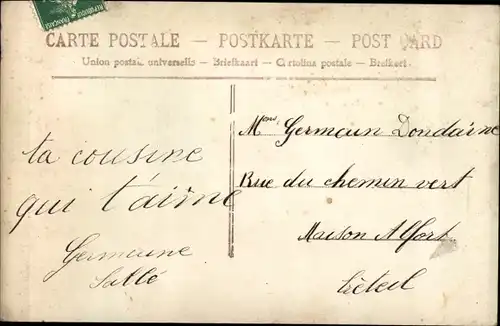 CARTE POSTALE — POSTKARTE — POST CARD
Union postale universelle — Briefkaart — Cartolina postale — Brefkort
ta cousine
qui t'aime
Germaine
Sallé
Mons Germain Dondaine
Rue du chemin vert
Maison Alfort
Créteil